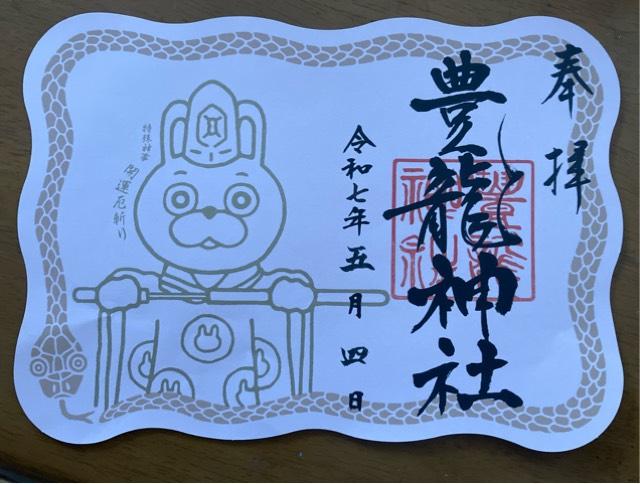 奉拝
豊龍神社
令和七年五月四日
特殊神事
開運厄斬り